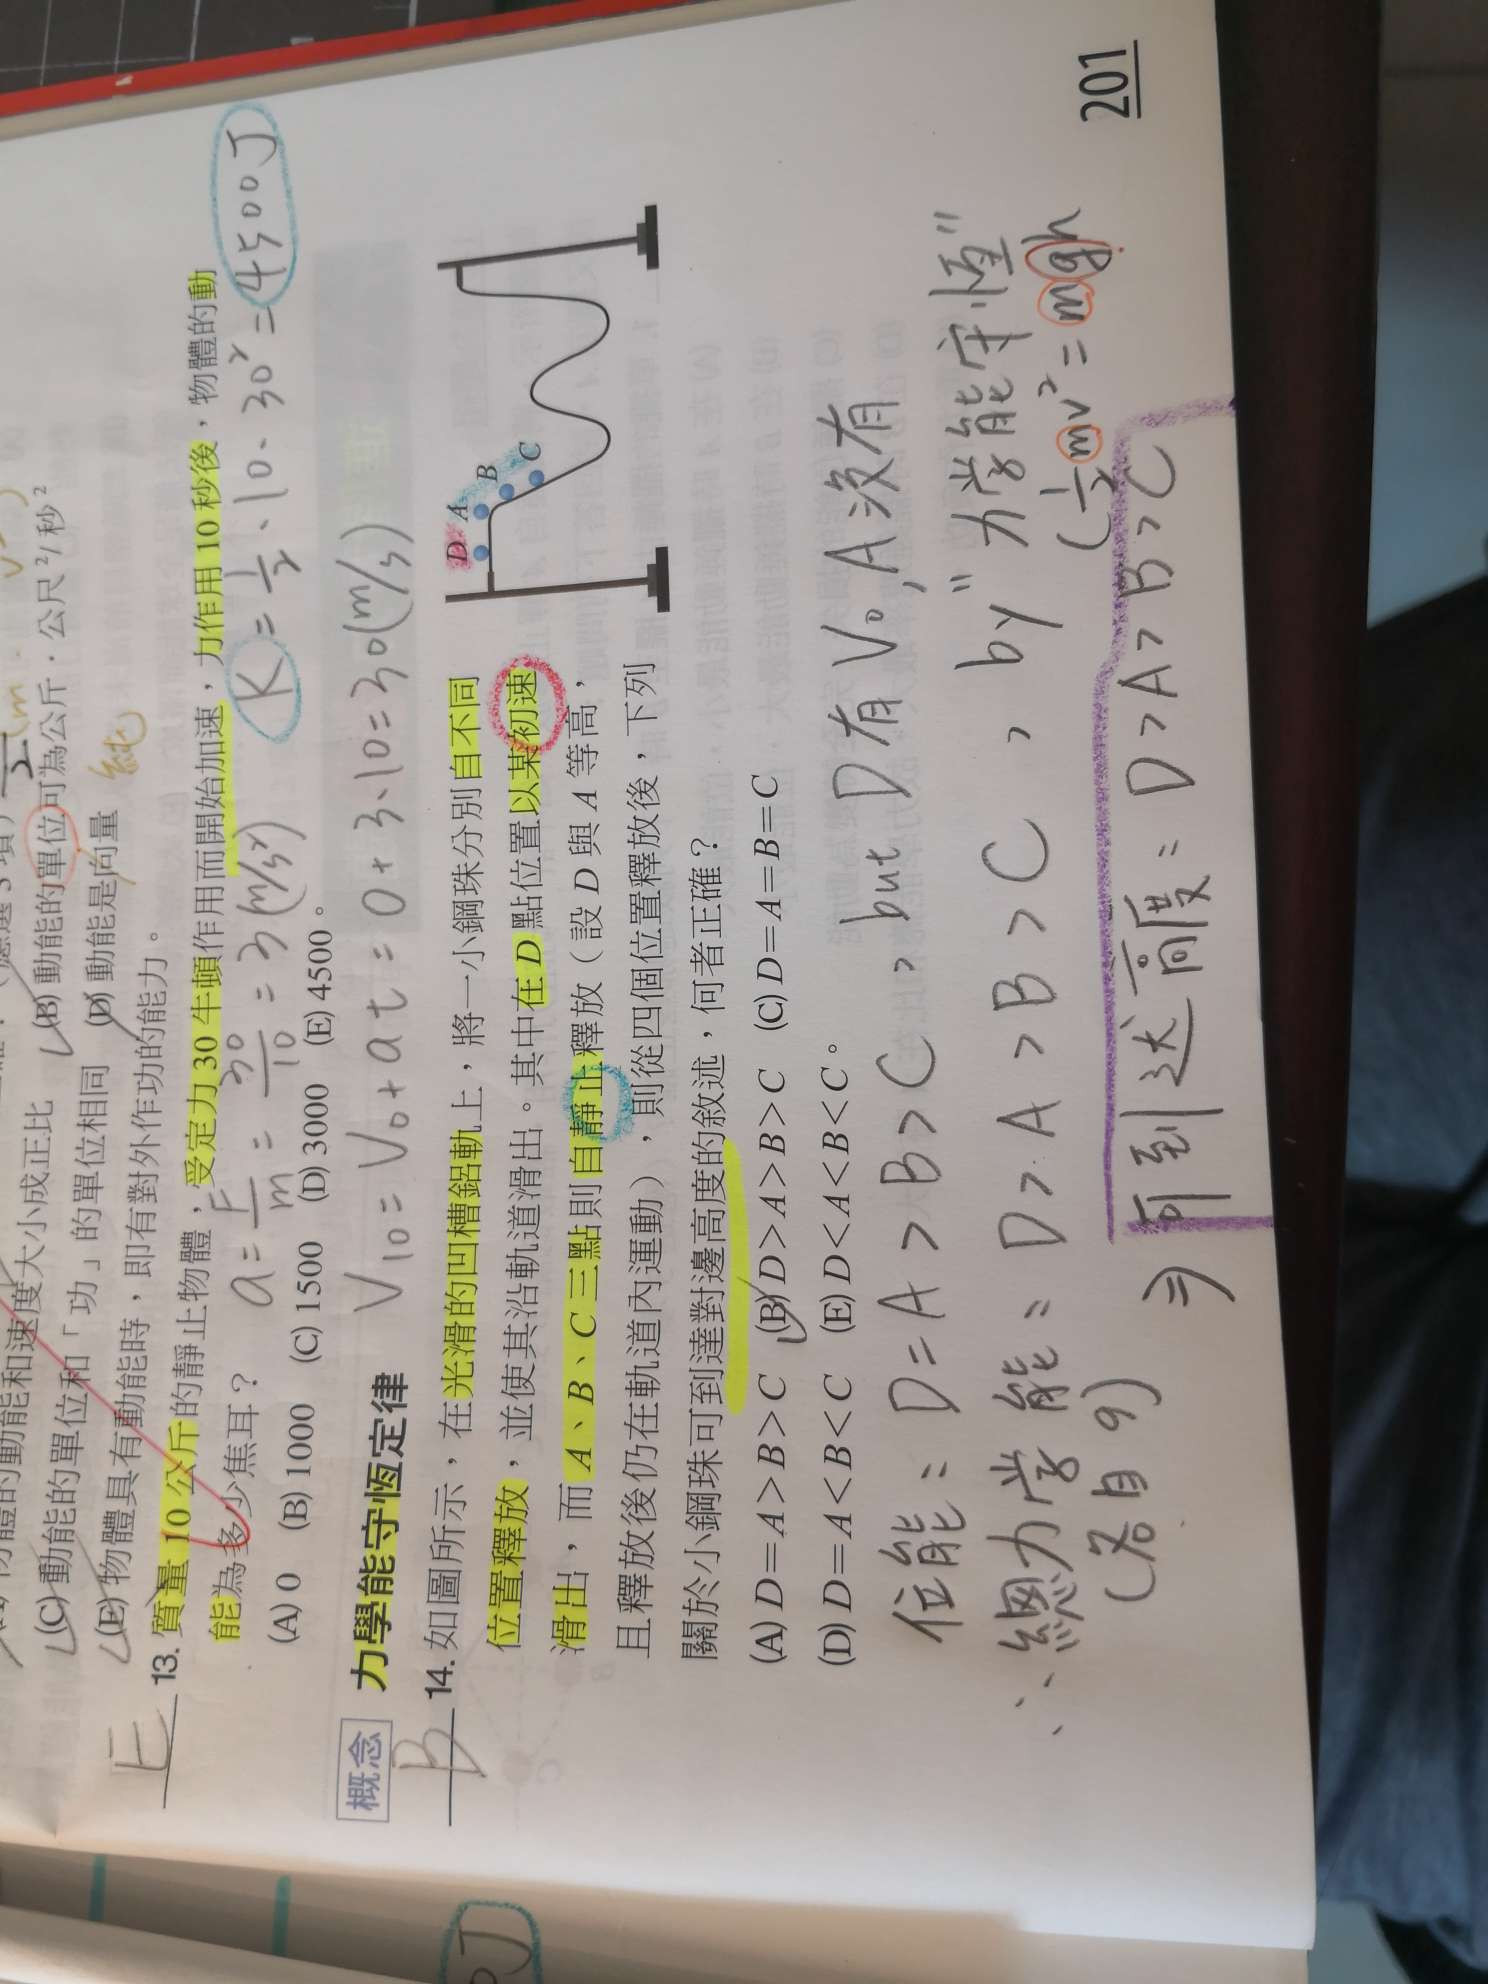 (B) 動能的單位可為公斤．公尺²/秒²
(C) 動能的單位和「功」的單位相同 (D) 動能是向量 純
(E) 物體具有動能時，即有對外作功的能力。
E 13. 質量 10 公斤的靜止物體，受定力 30 牛頓作用而開始加速，力作用 10 秒後，物體的動
能為多少焦耳？
a = F/m = 30/10 = 3 (m/s²) K = 1/2 · 10 · 30² = 4500J
(A) 0 (B) 1000 (C) 1500 (D) 3000 (E) 4500。
V10 = V0 + at = 0 + 3·10 = 30 (m/s)
概念 力學能守恆定律
B 14. 如圖所示，在光滑的凹槽鋁軌上，將一小鋼珠分別自不同
位置釋放，並使其沿軌道滑出。其中在 D 點位置以某初速
滑出，而 A、B、C 三點則自靜止釋放（設 D 與 A 等高，
且釋放後仍在軌道內運動），則從四個位置釋放後，下列
關於小鋼珠可到達對邊高度的敘述，何者正確？
D A B C
(A) D＝A＞B＞C (B) D＞A＞B＞C (C) D＝A＝B＝C
(D) D＝A＜B＜C (E) D＜A＜B＜C。
位能：D = A > B > C , but D 有 V0, A 沒有
∴ 總力学能：D > A > B > C , by "力学能守恆"
(各自的) (1/2 mv² = mgh
⇒ 可到达高度：D > A > B > C
201